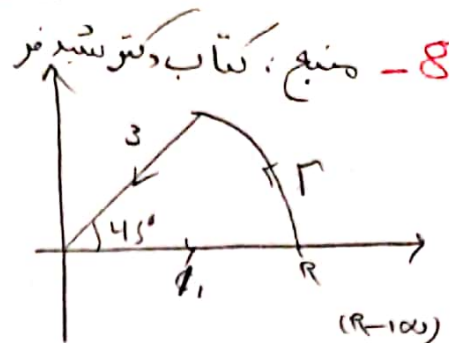 8 - منبع: کتاب دکتر شیدفر
3
Γ
45°
1
R
(R→∞)